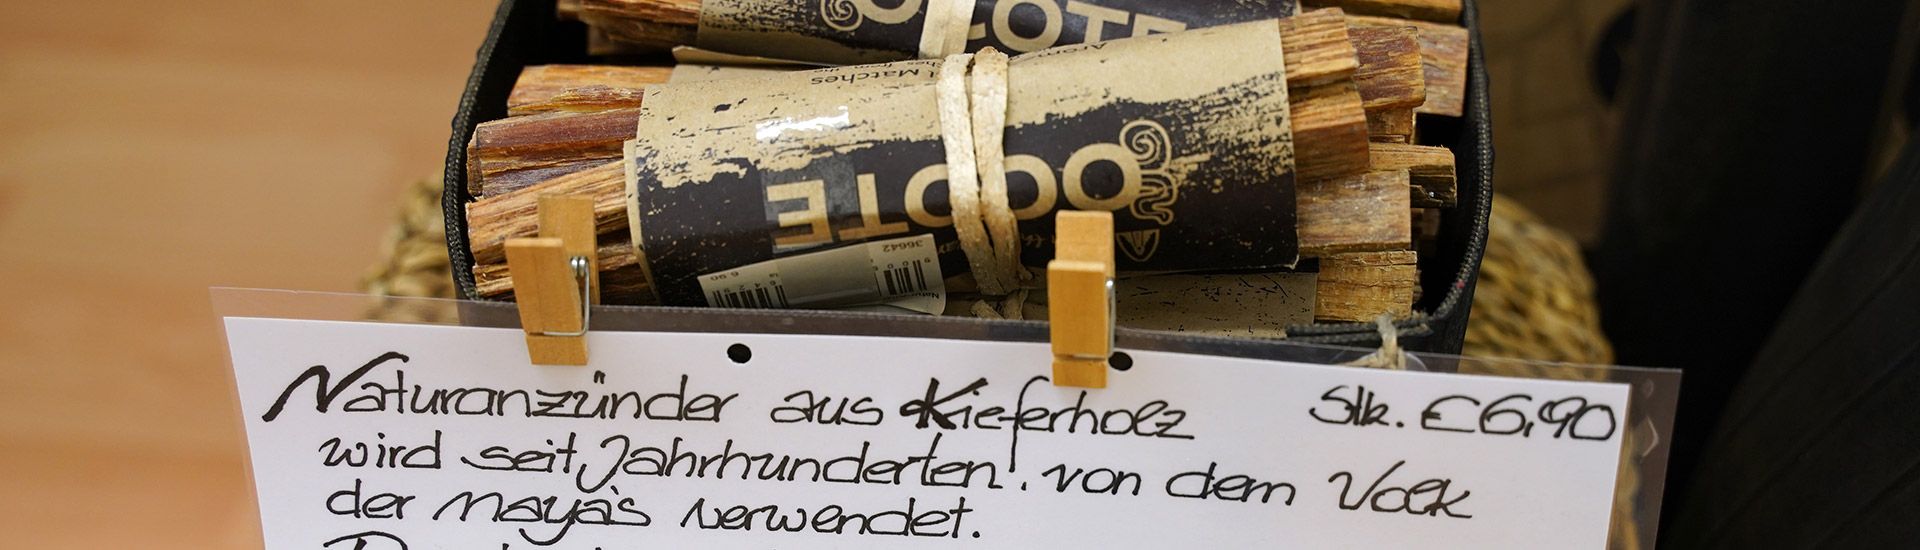 OCOTE
Matches
OCOTE
36642
6.90
Naturanzünder aus Kieferholz Stk. €6,90
wird seit Jahrhunderten von dem Volk
der Maya's verwendet.